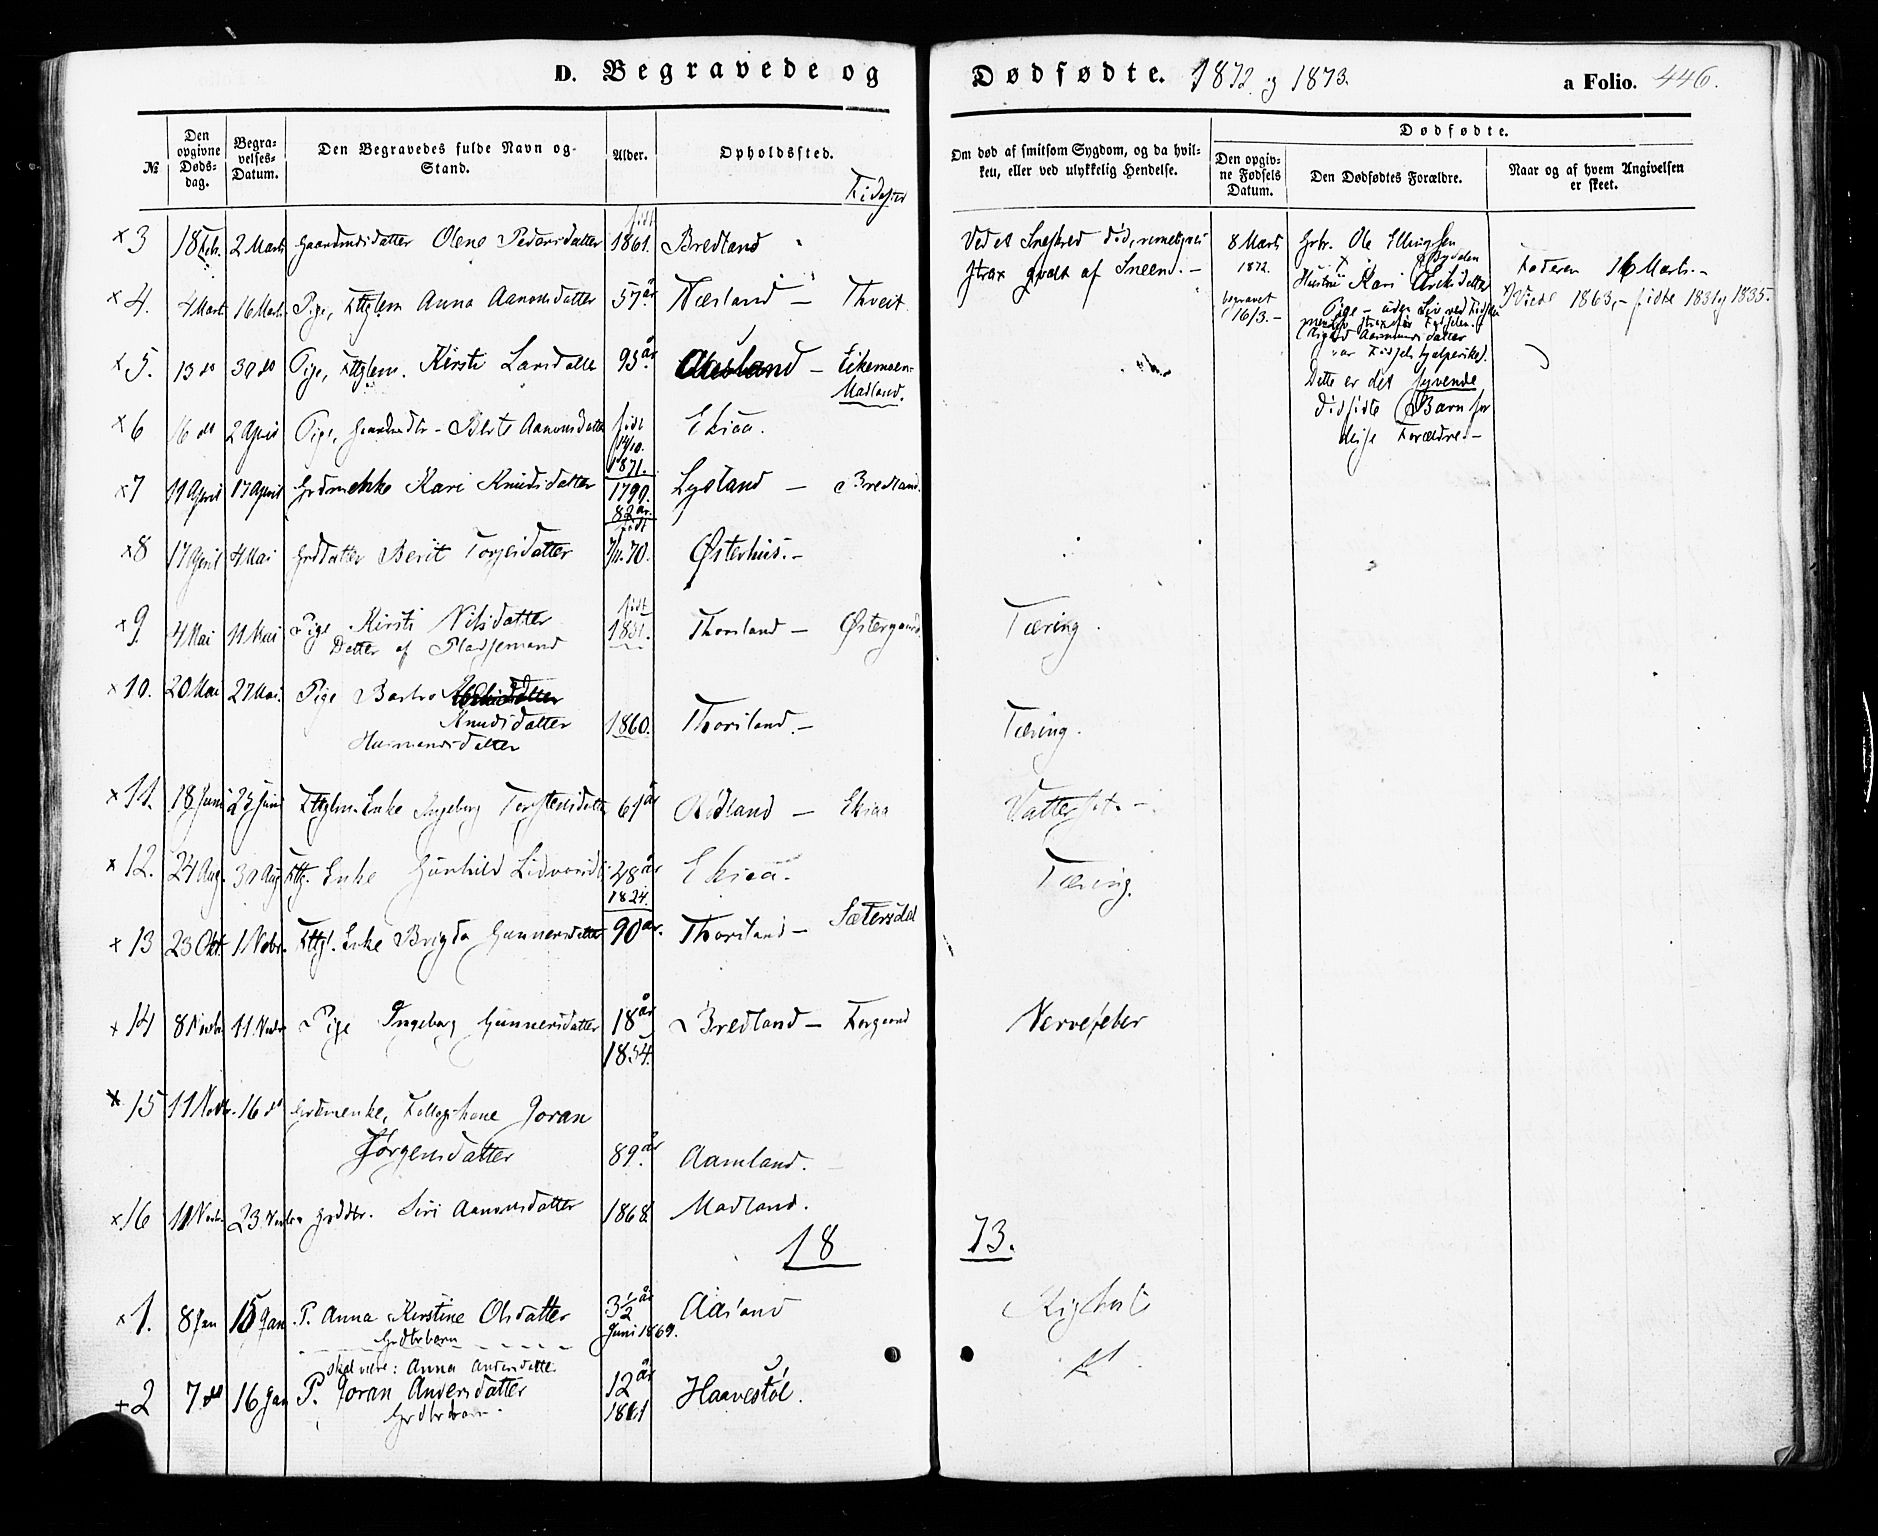 D. Begravede og Dødfødte. 1872 og 1873. a Folio. 446.
№
Den opgivne Døds-dag.
Begra-velses-Datum.
Den Begravedes fulde Navn og Stand.
Alder.
Opholdssted.
Fødested
Om død af smitsom Sygdom, og da hvil-ken, eller ved ulykkelig Hendelse.
Dødfødte.
Den opgiv-ne Fødsels Datum.
Den Dødfødtes Forældre.
Naar og af hvem Angivelsen er skeet.
×3 18 Febr. 2 Marts Gaardmdsdatter Olene Pedersdatter født 1861. Bredland
Ved et Sneskred død,
strax gravet af Sneen. -
8 Marts 1872. begravet 16/3. -
Gbr. Ole Ellingsen
Hustru Kari
Dette er det syvende
dødfødte Barn for
disse Forældre. -
Faderen 16 Marts. -
Viede 1863, - fødte 1831 og 1835.
×4. 4 Marts 16 Marts Pige, Fttglem Anna Aanonsdatter 57 år Næsland - Thveit
×5. 13 do 30 do Pige, Fttglem. Kirsti Larsdatter 93 år - Eikemoen-
Madland.
×6 16 do 2 April Pige, Gaardmdtr - Berte Aanonsdatter født 14/10. 1871. Ekiaa.
×7 11 April 17 April Grdmekke Kari Knudsdatter 1790. 82 år. Lysland - Bredland.
×8 17 April 4 Mai Grddatter Berit Torjesdatter født 7/11. 70. Østerhus. -
×9. 4 Mai 11 Mai Pige Kirsti Nilsdatter født 1851. Thorsland - Østergaard
Datter af Pladsemand
Tæring.
×10. 20 Mai 27 Mai. Pige Barbro
Knudsdatter 1860. Thorsland. - Tæring.
Husmandsdatter
×11. 18 Juni 23 Juni Fttglm. Enke Ingeborg Torstensdatter 61 år Rødland - Ekiaa Vattersot. -
×12. 24 Aug. 30 Aug Fttg. Enke Gunhild 48 år 1824. Ekiaa. Tæring.
×13 23 Okt. 1 Nobr. Fttgl. Enke Brigda Gunnersdatter 90 år. Thorsland - Sætersdal
×14 8 Novbr 11. Novbr Pige Ingeborg Gunnersdatter 18 år 1854. Bredland - Torgaard Nervefeber
×15 11 Novbr. 16 do Grdmenke, Føllogskone Joran
Jørgensdatter 89 år. Aamland.
×16 11 Novbr. 23 Novbr Grddtr. Siri Aanonsdatter 1868. Madland.
18 73.
×1. 8 Jan 15 Jan P. Anna Kirstine Olsdatter 3½ år Juni 1869. Aasland Kighoste
Grdbrbarn
skal være: Anna Andersdatter
+2 7 do 16 Jan P. Joran Andersdatter 12 år 1861 Haavestøl.
Grdbrbarn